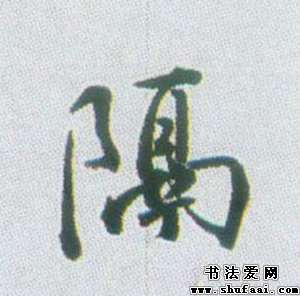 隔
书法爱网
www.shufaai.com